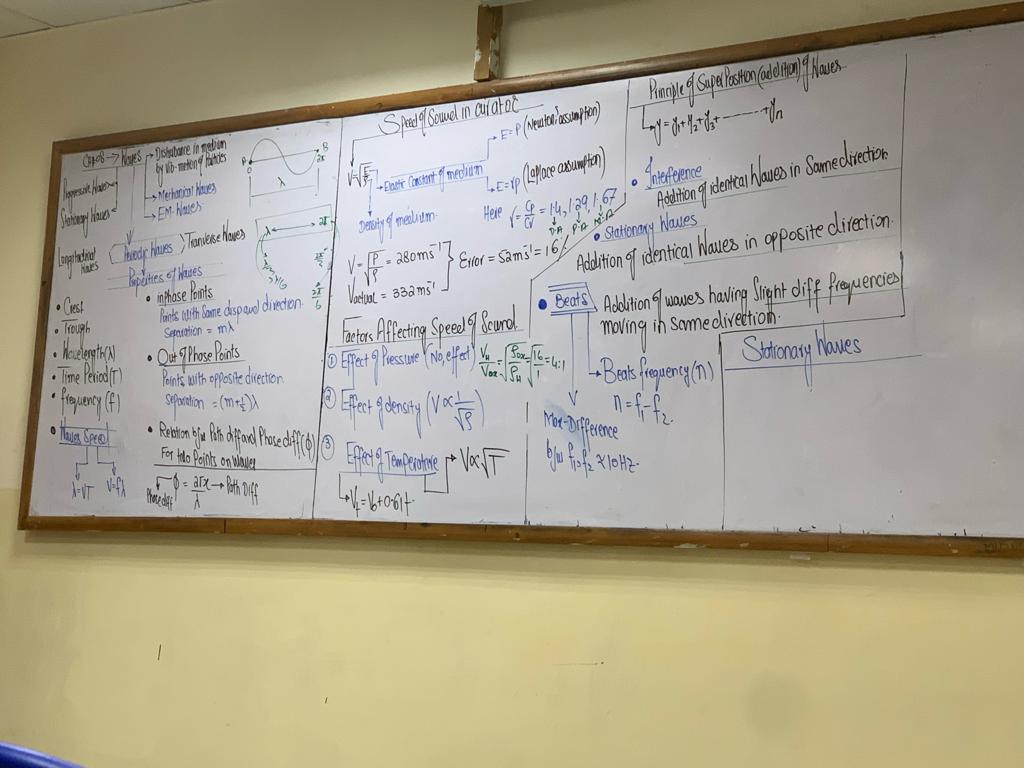 Waves
Disturbance in medium
by vib-motion of Particles
Mechanical Waves
EM-Waves
Progressive Waves
Stationary Waves
Longitudinal
Waves
Periodic Waves
Tranverse Waves
Properties of Waves
A
B
2π
λ
λ
2π
• Crest
• Trough
• Wavelength(λ)
• Time Period(T)
• frequency(f)
• Waves Speed
λ=VT
V=fλ
• inphase Points
Points with Same disp and direction.
Separation = mλ
• Out of Phase Points
Points with opposite direction
Separation = (m+½)λ
• Relation b/w Path diff and Phase diff(ϕ)
For two Points on Waves
Phase diff ϕ = 2πx/λ → Path Diff
Speed of Sound in air
V=√E/ρ
Elastic Constant of medium
E=P (Newton's assumption)
E=γP (Laplace assumption)
Density of medium
Here γ = Cp/Cv = 1.4, 1.29, 1.67
V = √P/ρ = 280ms⁻¹
Vactual = 332ms⁻¹
Error = 52ms⁻¹ = 16%
Factors Affecting Speed of Sound
① Effect of Pressure (No, effect)
VH/VOx = √ρOx/ρH = √16/1 = 4:1
② Effect of density (V ∝ 1/√ρ)
③ Effect of Temperature
V∝√T
Vt = V0+0.61t
Principle of SuperPosition(addition) of Waves
y = y1+y2+y3+ ........ +yn
• Interference
Addition of identical Waves in Same direction
• Stationary Waves
Addition of identical Waves in opposite direction.
• Beats
Addition of waves having Slight diff frequencies
moving in Same direction.
Beats frequency(n)
n = f1-f2
Max-Difference
b/w f1, f2 ≈ 10Hz.
Stationary Waves